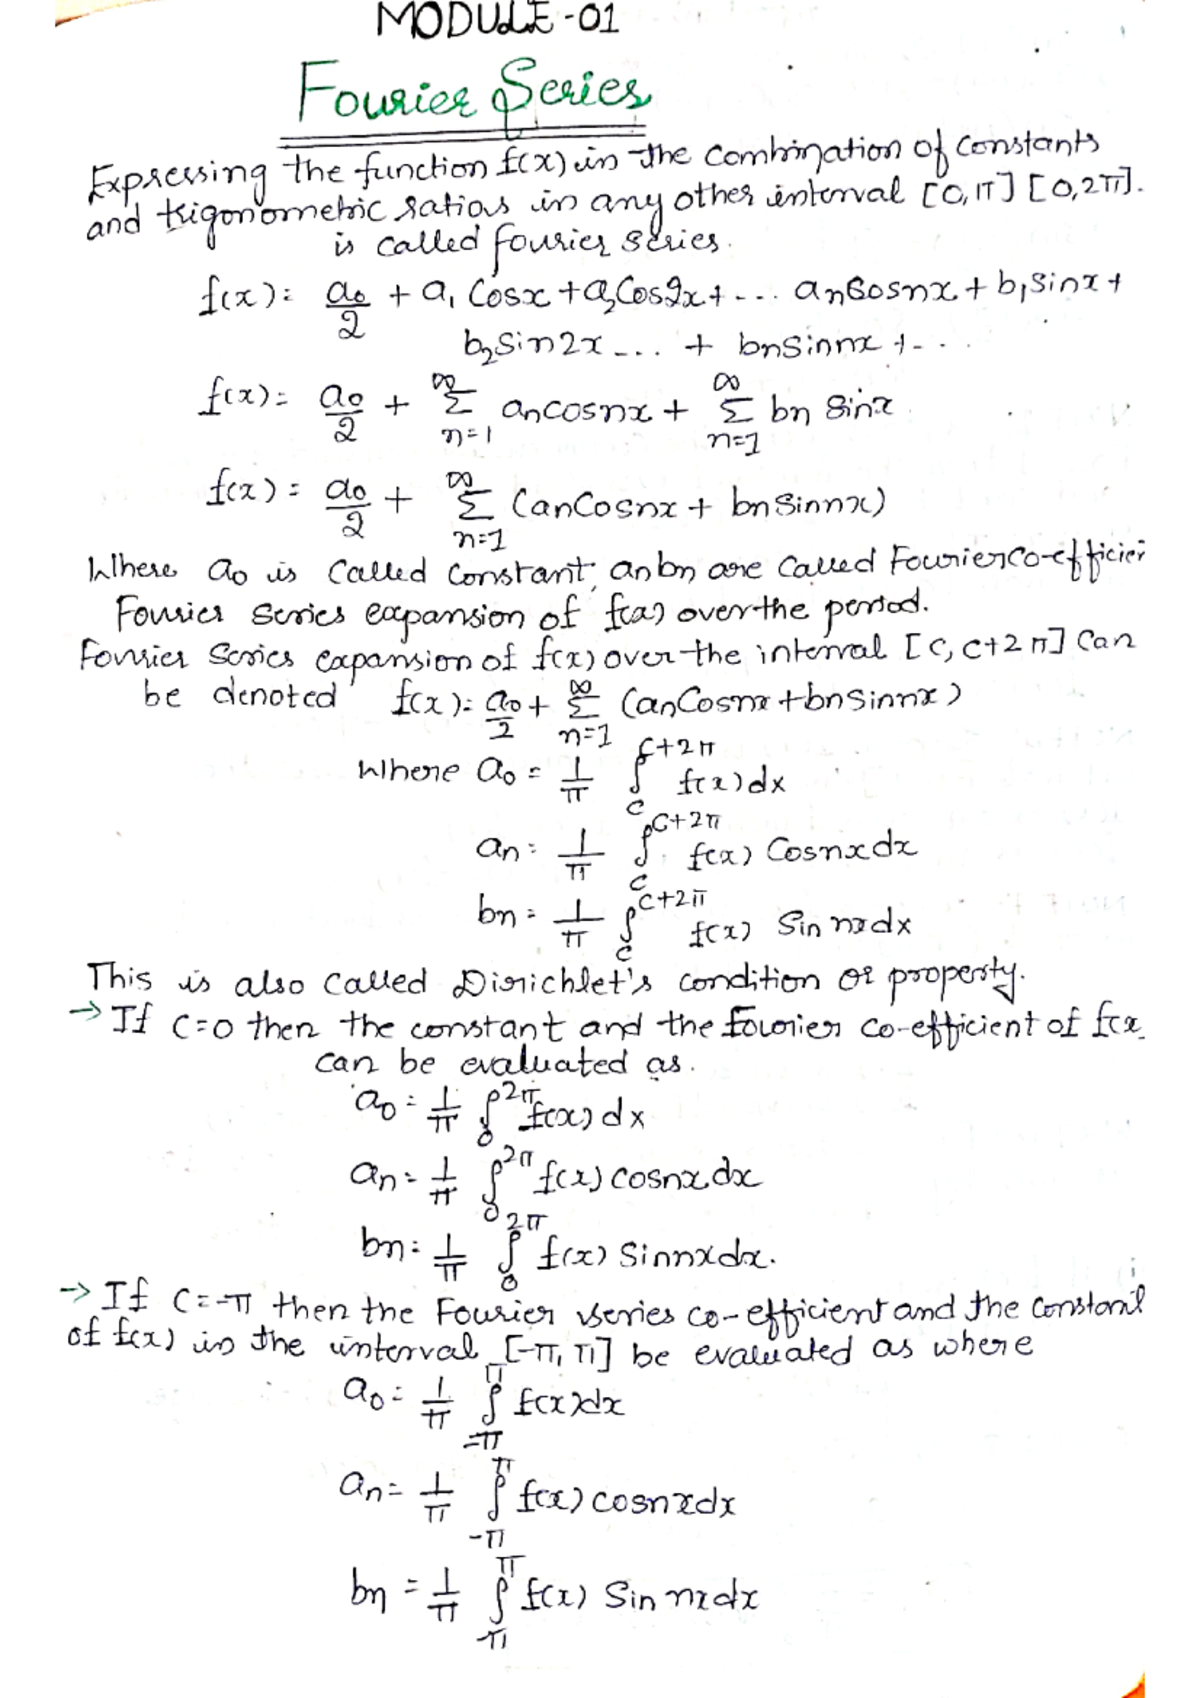 MODULE-01
Fourier Series
Expressing the function f(x) in the combination of constants
and trigonometric ratios in any other interval [0,π] [0,2π].
is called fourier series.
f(x) = a₀/2 + a₁ Cosx + a₂Cos2x + --- . anCosnx + b₁sinx +
b₂sin2x --.. + bnsinnx + - . .
f(x) = a₀/2 + ∞Σn=1 ancosnx + ∞Σn=1 bn sinx
f(x) = a₀/2 + ∞Σn=1 (anCosnx + bnsinnx)
Where a₀ is called constant, anbn are called Fourierco-efficier
Fourier series expansion of f(x) over the period.
Fourier Series expansion of f(x) over the interval [c, c+2π] can
be denoted f(x) = a₀/2 + ∞Σn=1 (anCosnx + bnsinnx)
Where a₀ = 1/π ∫c^c+2π f(x)dx
an = 1/π ∫c^c+2π f(x) Cosnxdx
bn = 1/π ∫c^c+2π f(x) Sin nxdx
This is also called Dirichlet's condition or property.
→ If c=0 then the constant and the fourier co-efficient of f(x
can be evaluated as.
a₀ = 1/π ∫0^2π f(x) dx
an = 1/π ∫0^2π f(x) cosnxdx
bn = 1/π ∫0^2π f(x) Sinnxdx.
→ If c=-π then the Fourier series co-efficient and the constant
of f(x) in the interval [-π, π] be evaluated as where
a₀ = 1/π ∫-π^π f(x)dx
an = 1/π ∫-π^π f(x) cosnxdx
bn = 1/π ∫-π^π f(x) Sin nxdx